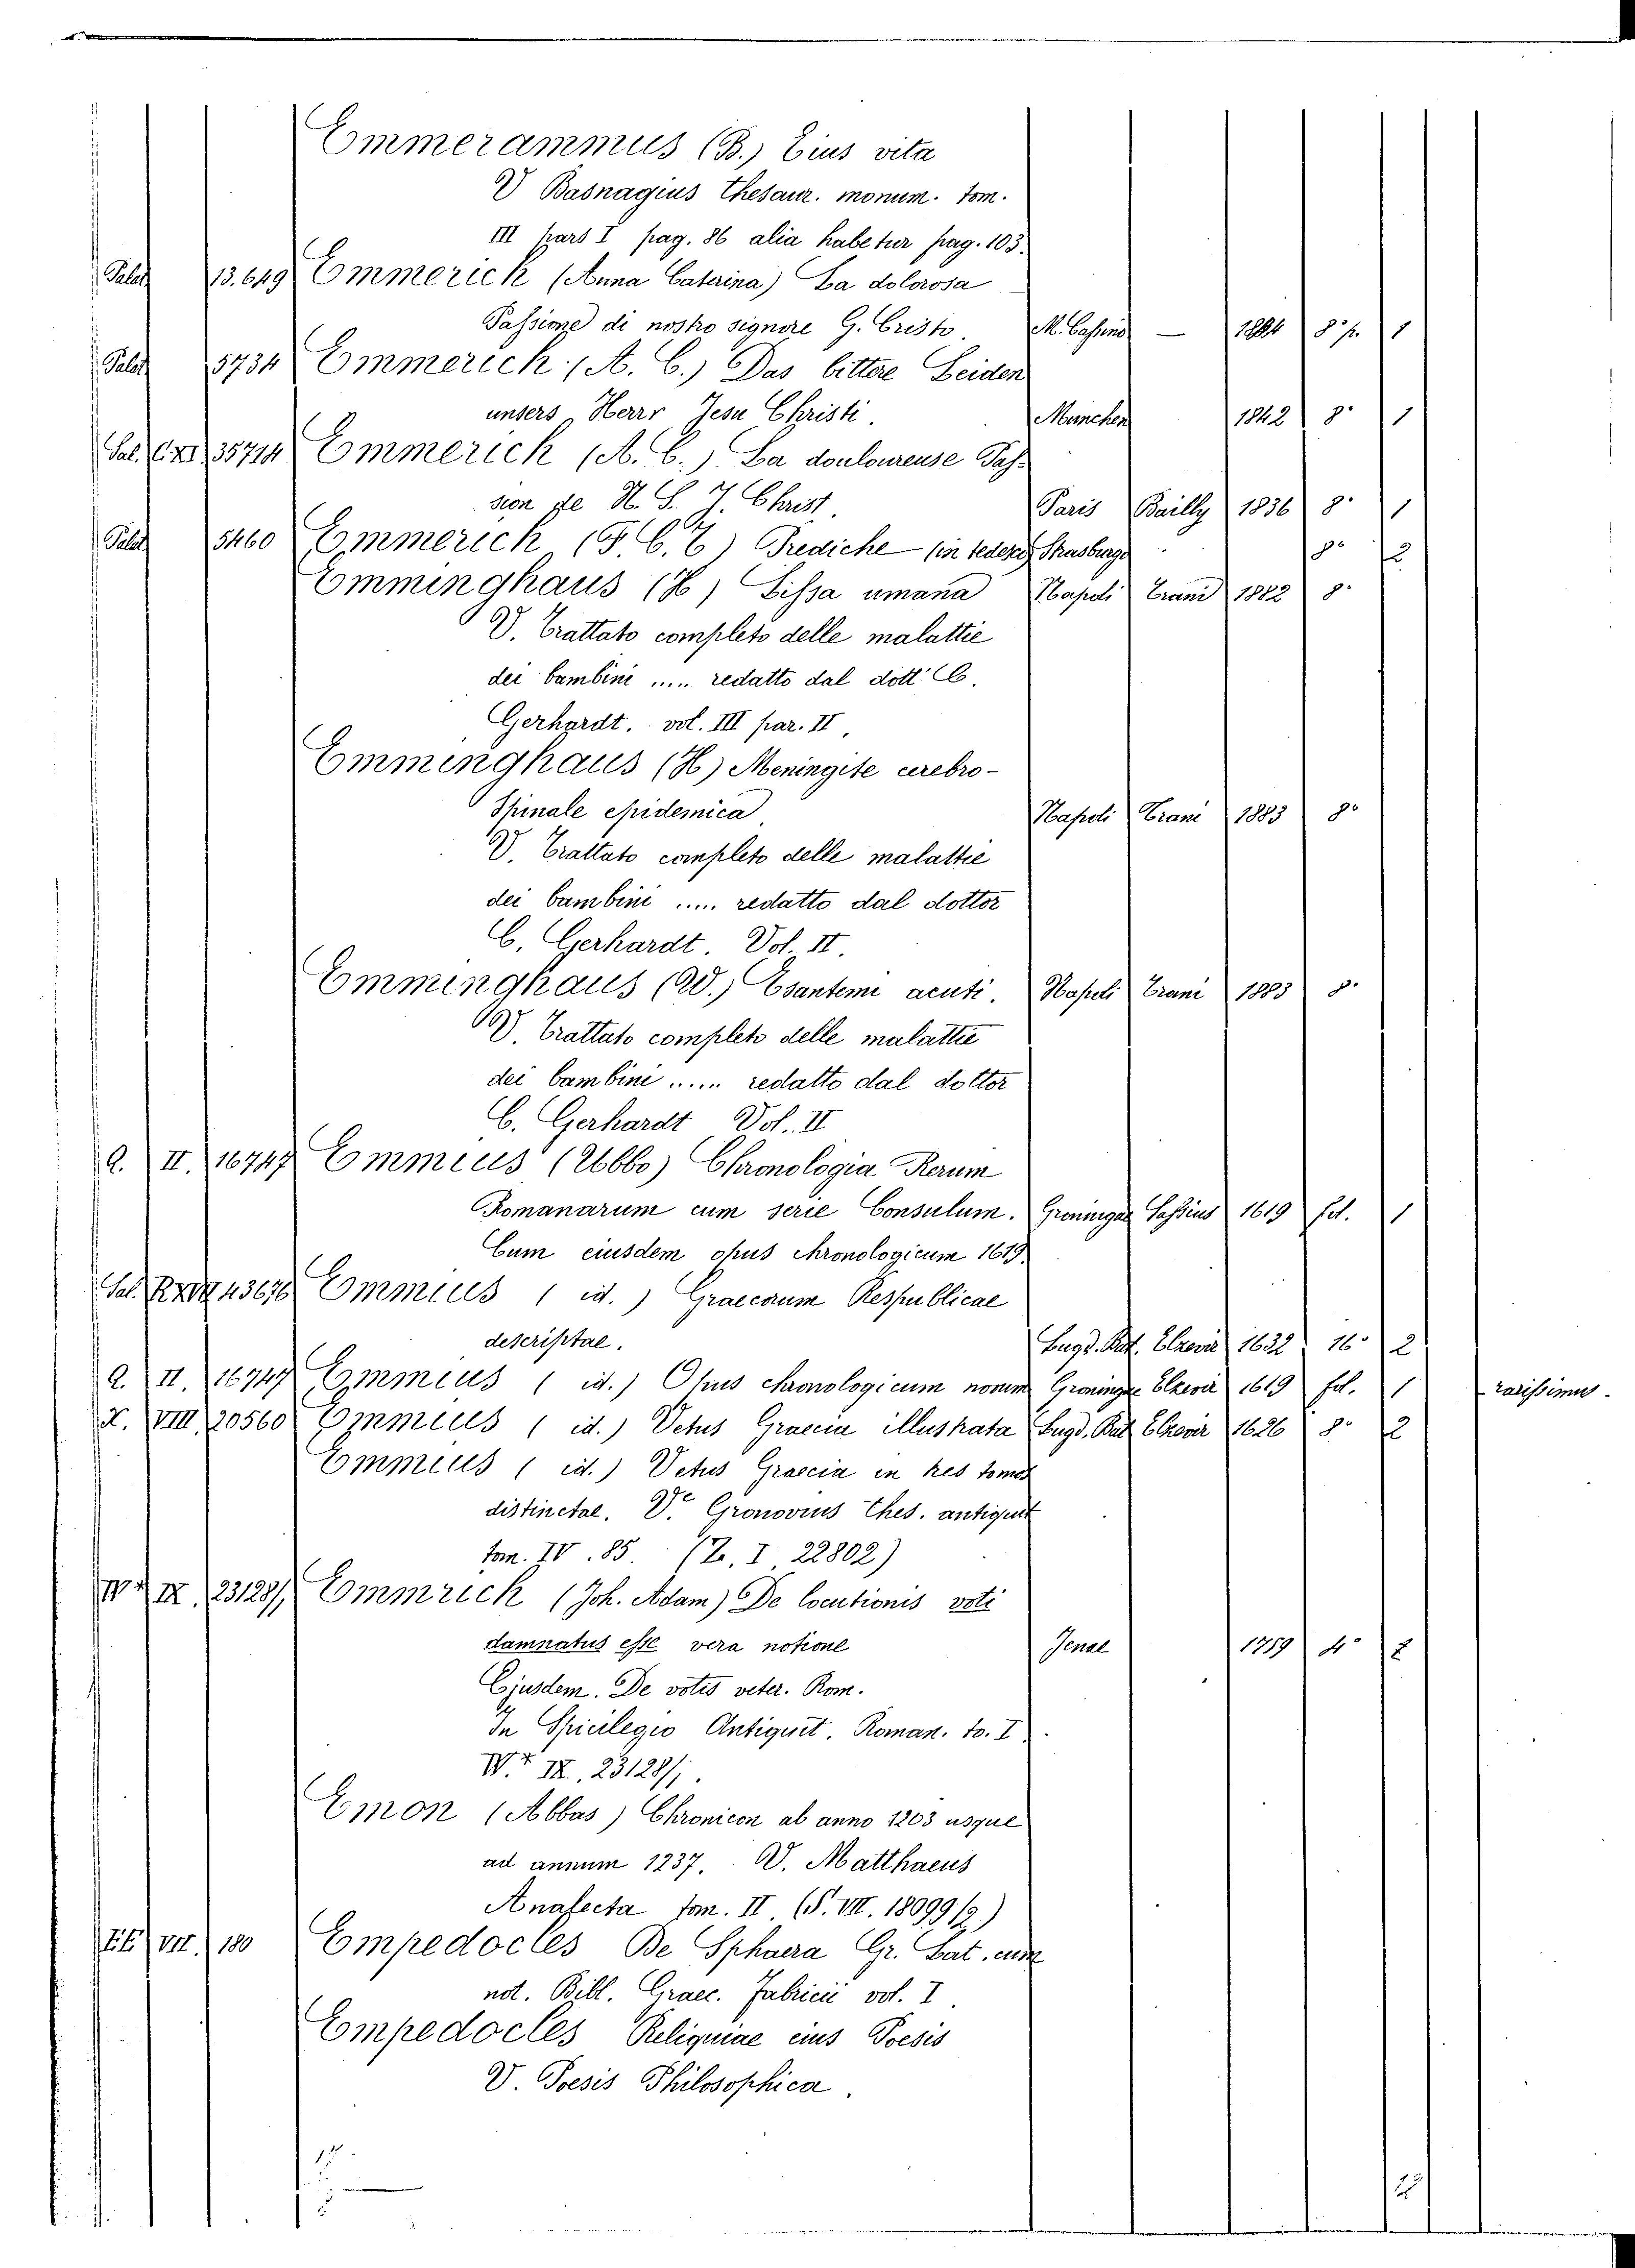 Emmerammus (B.) Eius vita
V Basnagius Thesaur. monum. tom.
III pars I pag. 86 alia habetur pag. 103.
Palat 13.649 Emmerich (Anna Caterina) La dolorosa
Passione di nostro signore G. Cristo M. Cassino — 8° p. 1
Palat 5734 Emmerich (A. C.) Das bittere Leiden
unsers Herr Jesu Christi. München 1842 8° 1
Sal. 35714 Emmerich (A. C.) La douloureuse Pas-
sion de N. S. J. Christ Paris Bailly 1836 8° 1
Palat 5460 Emmerich (F. C. E) Prediche (in tedesco) Strasburgo 8° 2
Emminghaus (H) Lissa umana Napoli Trani 1882 8°
V. Trattato completo delle malattie
dei bambini ..... redatto dal dott C.
Gerhardt. vol. III par. II
Emminghaus (H) Meningite cerebro-
Spinale epidemica Napoli Trani 1883 8°
V. Trattato completo delle malattie
dei bambini ..... redatto dal dottor
C. Gerhardt. Vol. II.
Emminghaus (W.) Esantemi acuti. Napoli Trani 1883 8°
V. Trattato completo delle malattie
dei bambini ..... redatto dal dottor
C. Gerhardt Vol. II
Q. II. 16747 Emmius (Ubbo) Chronologia Rerum
Romanarum cum serie Consulum. Groningae Sassius 1619 fol. 1
Cum eiusdem opus chronologicum 1619.
Sal. 43676 Emmius ( id. ) Graecorum Respublicae
descriptae. Lugd. Bat. Elzevir 1632 16° 2
Q. II 16747 Emmius ( id.) Opus chronologicum novum Groningae Elzevir 1619 fol. 1 rarissimus.
X. VIII 20560 Emmius ( id.) Vetus Graecia illustrata Lugd. Bat Elzevir 1626 8° 2
Emmius ( id.) Vetus Graecia in tres tomos
distinctae. V. Gronovius Thes. antiquit
tom. IV. 85. (Z. I 22802)
W IX 23128/1 Emmrich (Joh. Adam) De locutionis voti
damnatus esse vera notione Jenae 1759 4°
Ejusdem. De votis veter. Rom.
In Spicilegio Antiquit. Roman. to. I.
W IX. 23128/1.
Emon (Abbas) Chronicon ab anno 1203 usque
ad annum 1237. V. Matthaeus
Analecta tom. II. (S. VIII. 18099/2)
EE VII. 180 Empedocles De Sphaera Gr. Lat. cum
not. Bibl. Graec. Fabricii vol. I.
Empedocles Reliquiae eius Poesis
V. Poesis Philosophica.